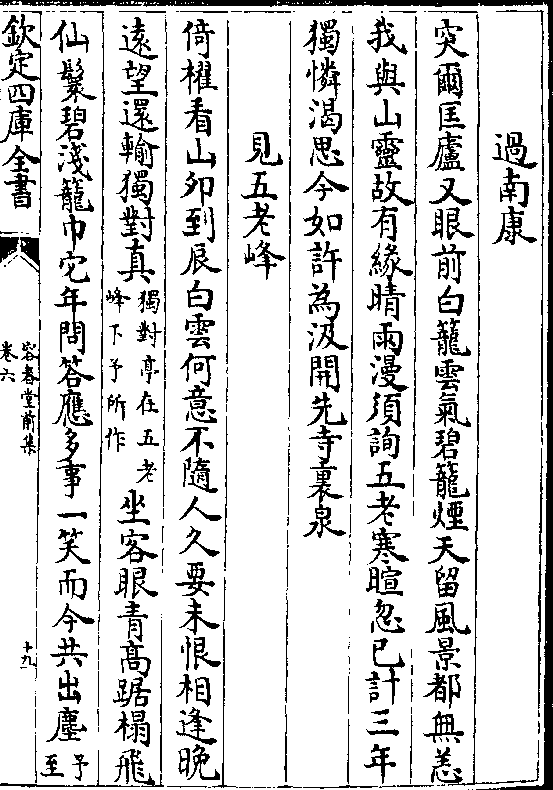 過南康
突爾匡廬又眼前白籠雲氣碧籠煙天留風景都無恙
我與山靈故有緣晴雨漫須詢五老寒暄忽已計三年
獨憐渴思今如許為汲開先寺裏泉
見五老峰
倚櫂看山夘到辰白雲何意不隨人久要未恨相逢晚
遠望還輸獨對真獨對亭在五老峰下予所作坐客眼青高踞榻飛
仙鬟碧淺籠巾它年問答應多事一笑而今共出塵予至
欽定四庫全書
容春堂前集
卷六
十九